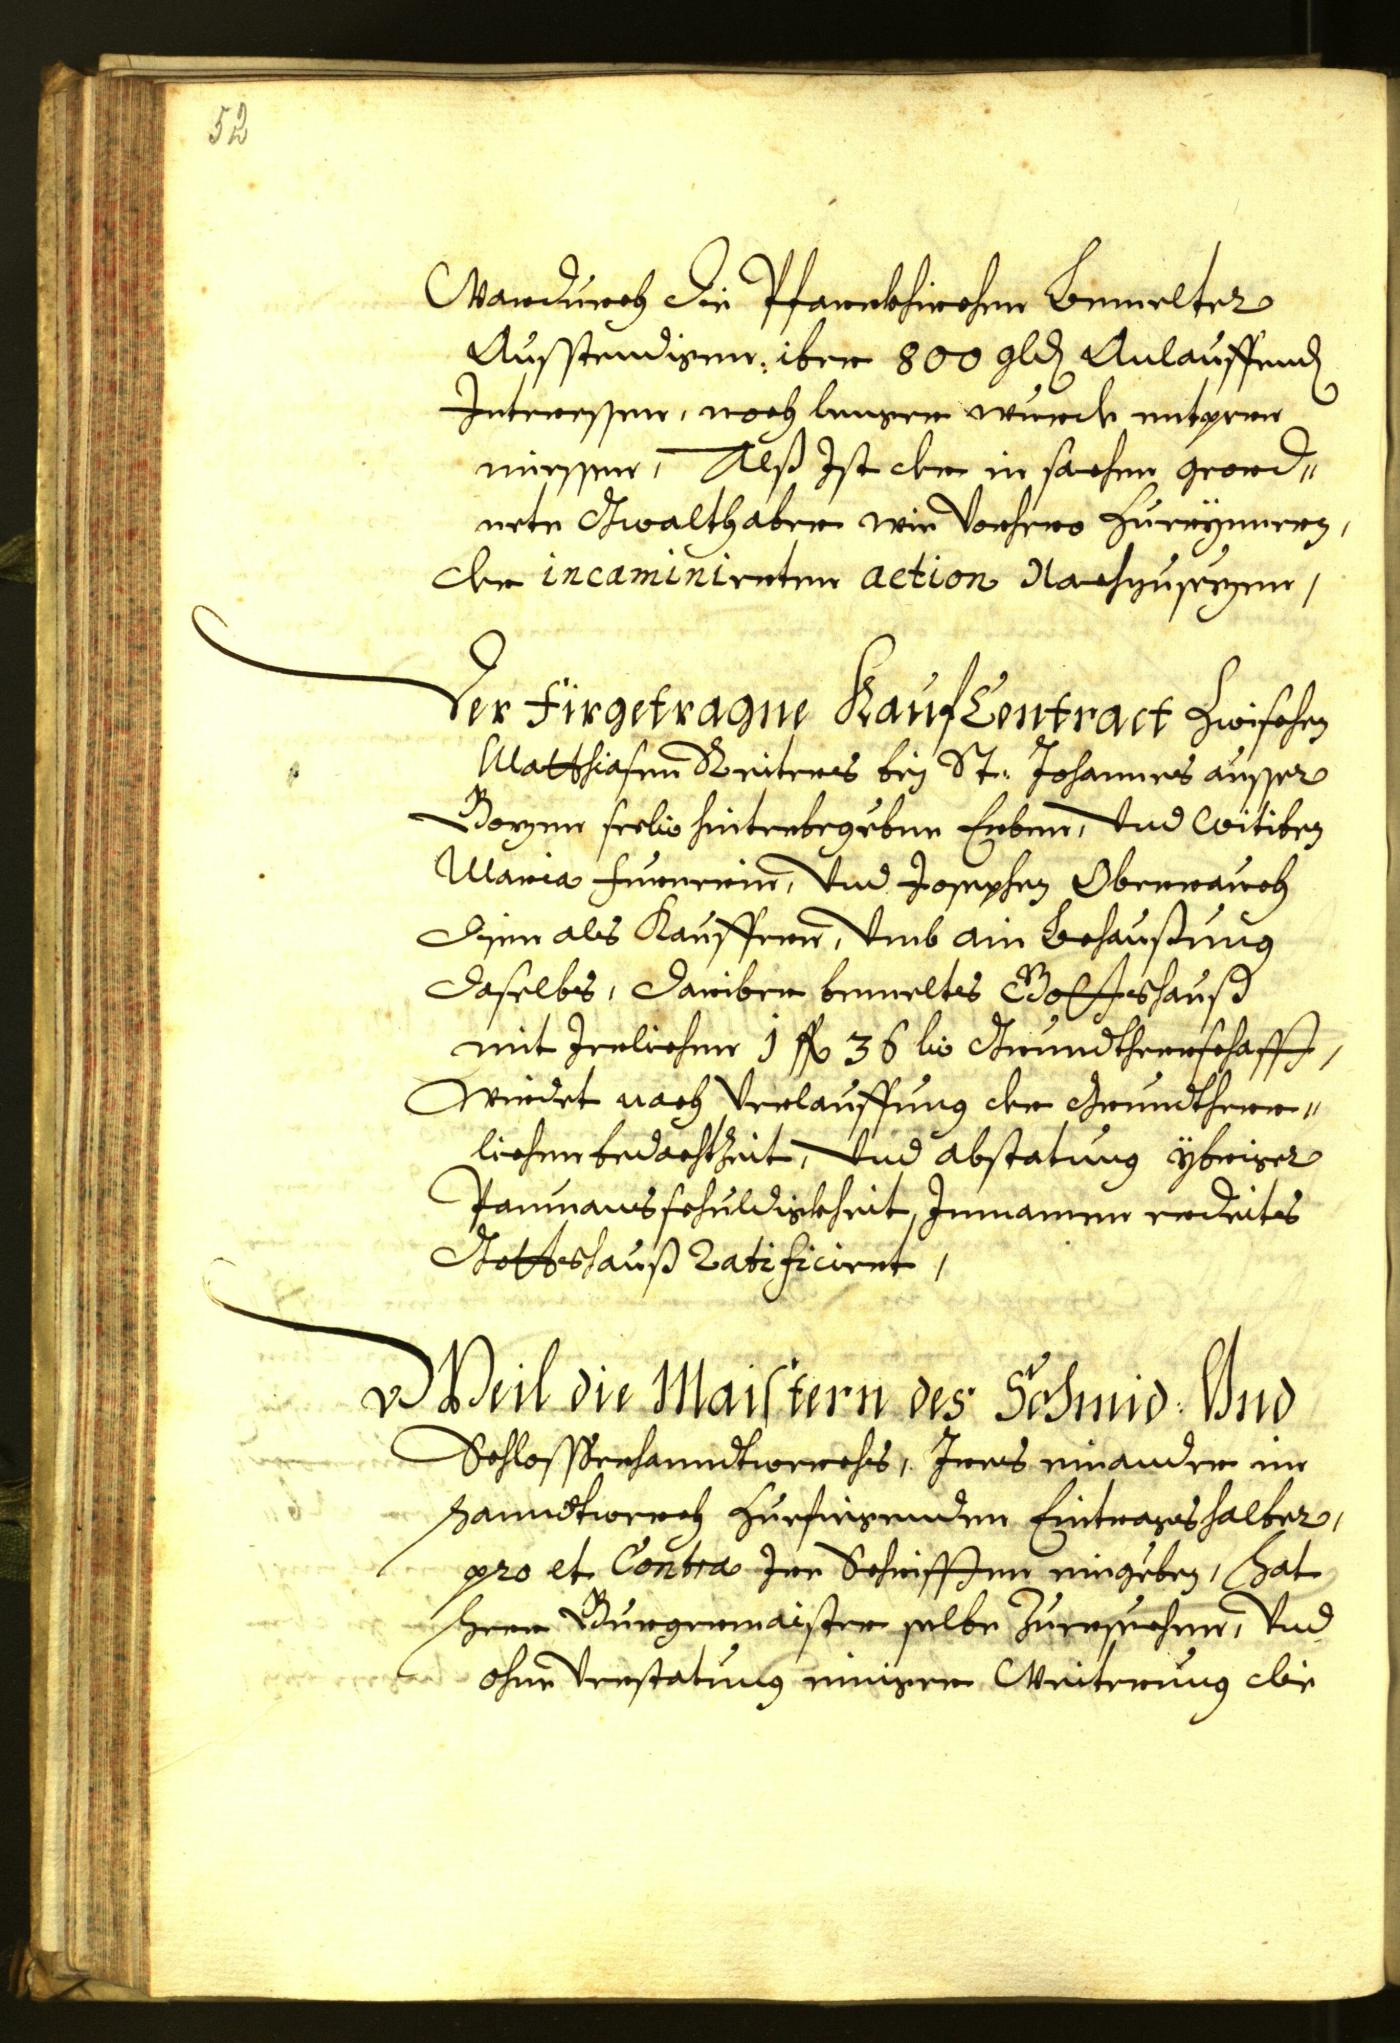 52
Wardurch die Pfarrkhirchen bemelter
Ausstendigen, iber 800 gld Anlauffend
Interessen, noch lenger wurde entpern
miessen, Alß Ist der in sachen geord„
nete Gwalthaber wie vorhero zuerynnern,
der incaminierten action Nachzusezen,
Der Firgetragne Kauf Contract zwischen
Matthiasen Reiters bey St. Johannes ausser
Bozen seelig hinterbegebne Erben, vnd Witiben
Maria, vnd Josephen Oberrauch
als Kauffern, vmb ain Behaußung
daselbs, dariber bemeltes Gottshauß
mit Jerlichen 1 fl 36 kr Grundtherrschafft,
wirdet nach Verlauffung der Grundtherr„
lichen bedachtZeit, vnd abstatung ybriger
Paumansschuldigkheit, Innamen erdeites
Gottshauß Ratificiert,
Weil die Maistern des Schmid: Vnd
Schlosserhanndtwerchs, Ires einander im
Hanndtwerch zuefiegenden Eintragshalber,
pro et Contra Ire Schrifften eingeben, hat
Herr Burgermaister selbe zuersechen, vnd
ohne verstatung einiger Weiterung die